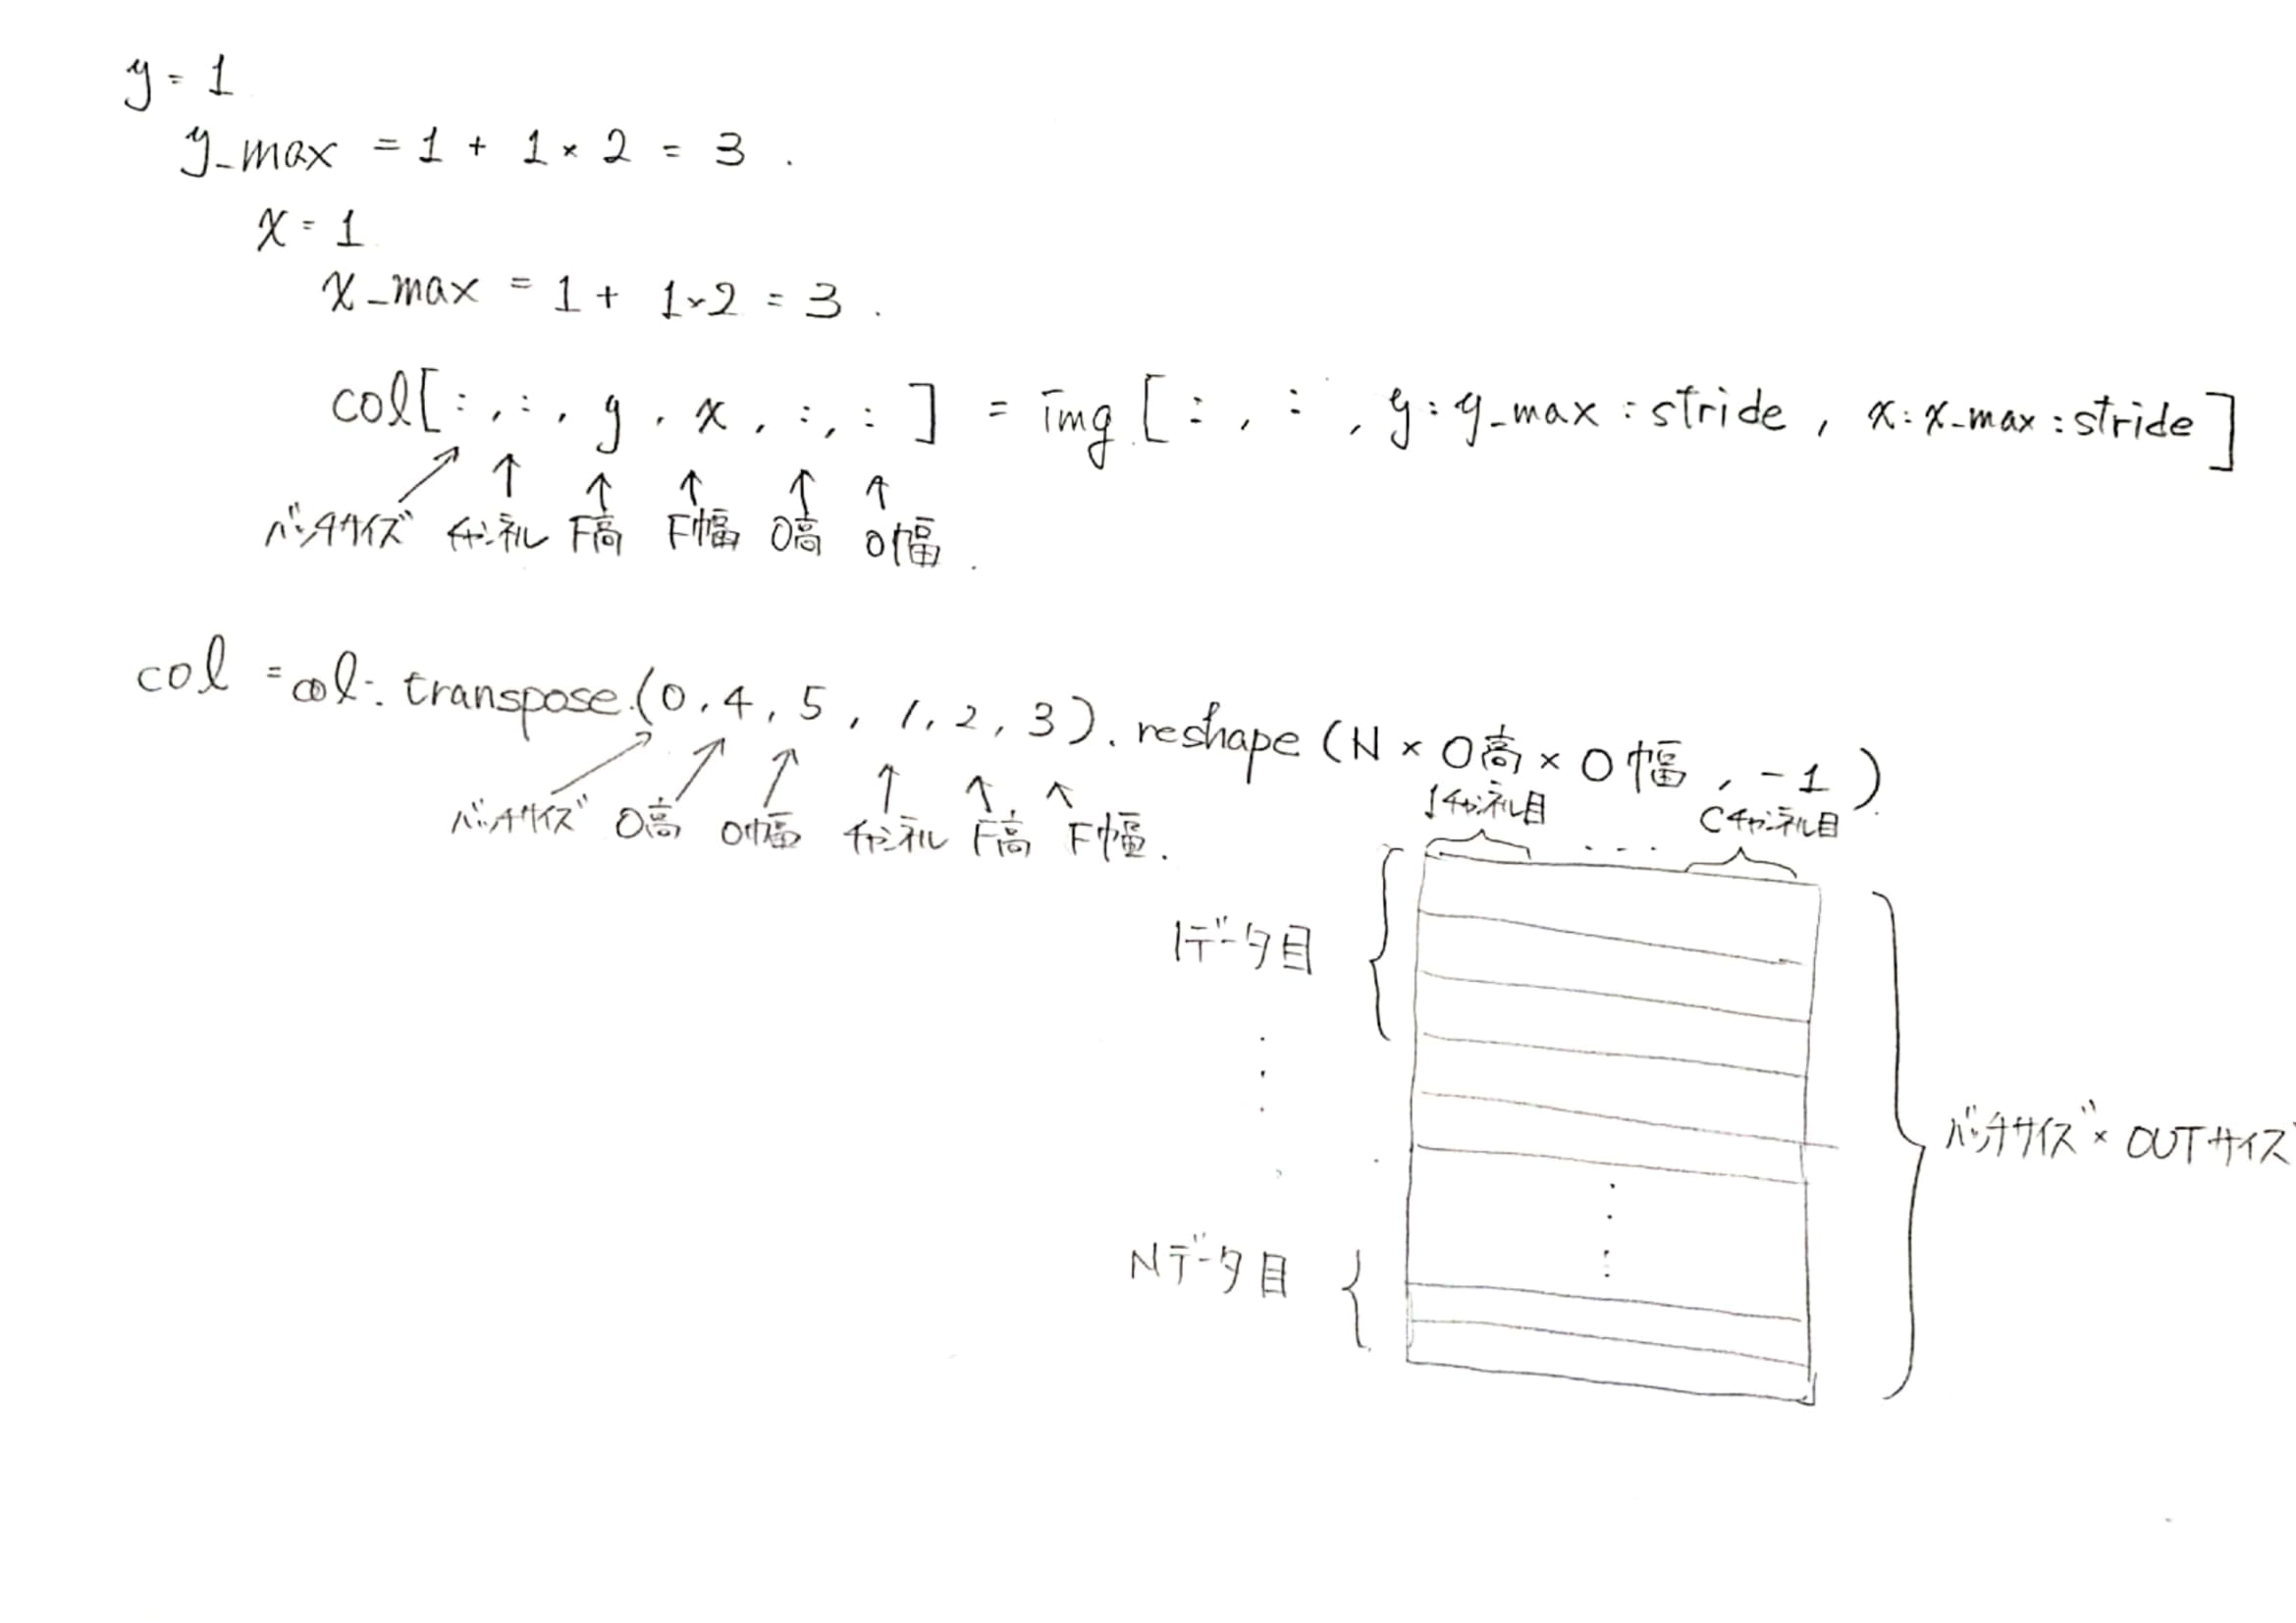 y = 1
y_max = 1 + 1 × 2 = 3 .
x = 1
x_max = 1 + 1×2 = 3 .
col[ : , : , y , x , : , : ] = img [ : , : , y : y_max : stride , x : x_max : stride ]
バッチサイズ チャンネル F高 F幅 O高 O幅 .
col = col . transpose (0 , 4 , 5 , 1 , 2 , 3 ) . reshape ( N × O高 × O幅 , -1 )
バッチサイズ O高 O幅 チャンネル F高 F幅 .
1チャンネル目 ... Cチャンネル目
1データ目
バッチサイズ × OUTサイズ
Nデータ目